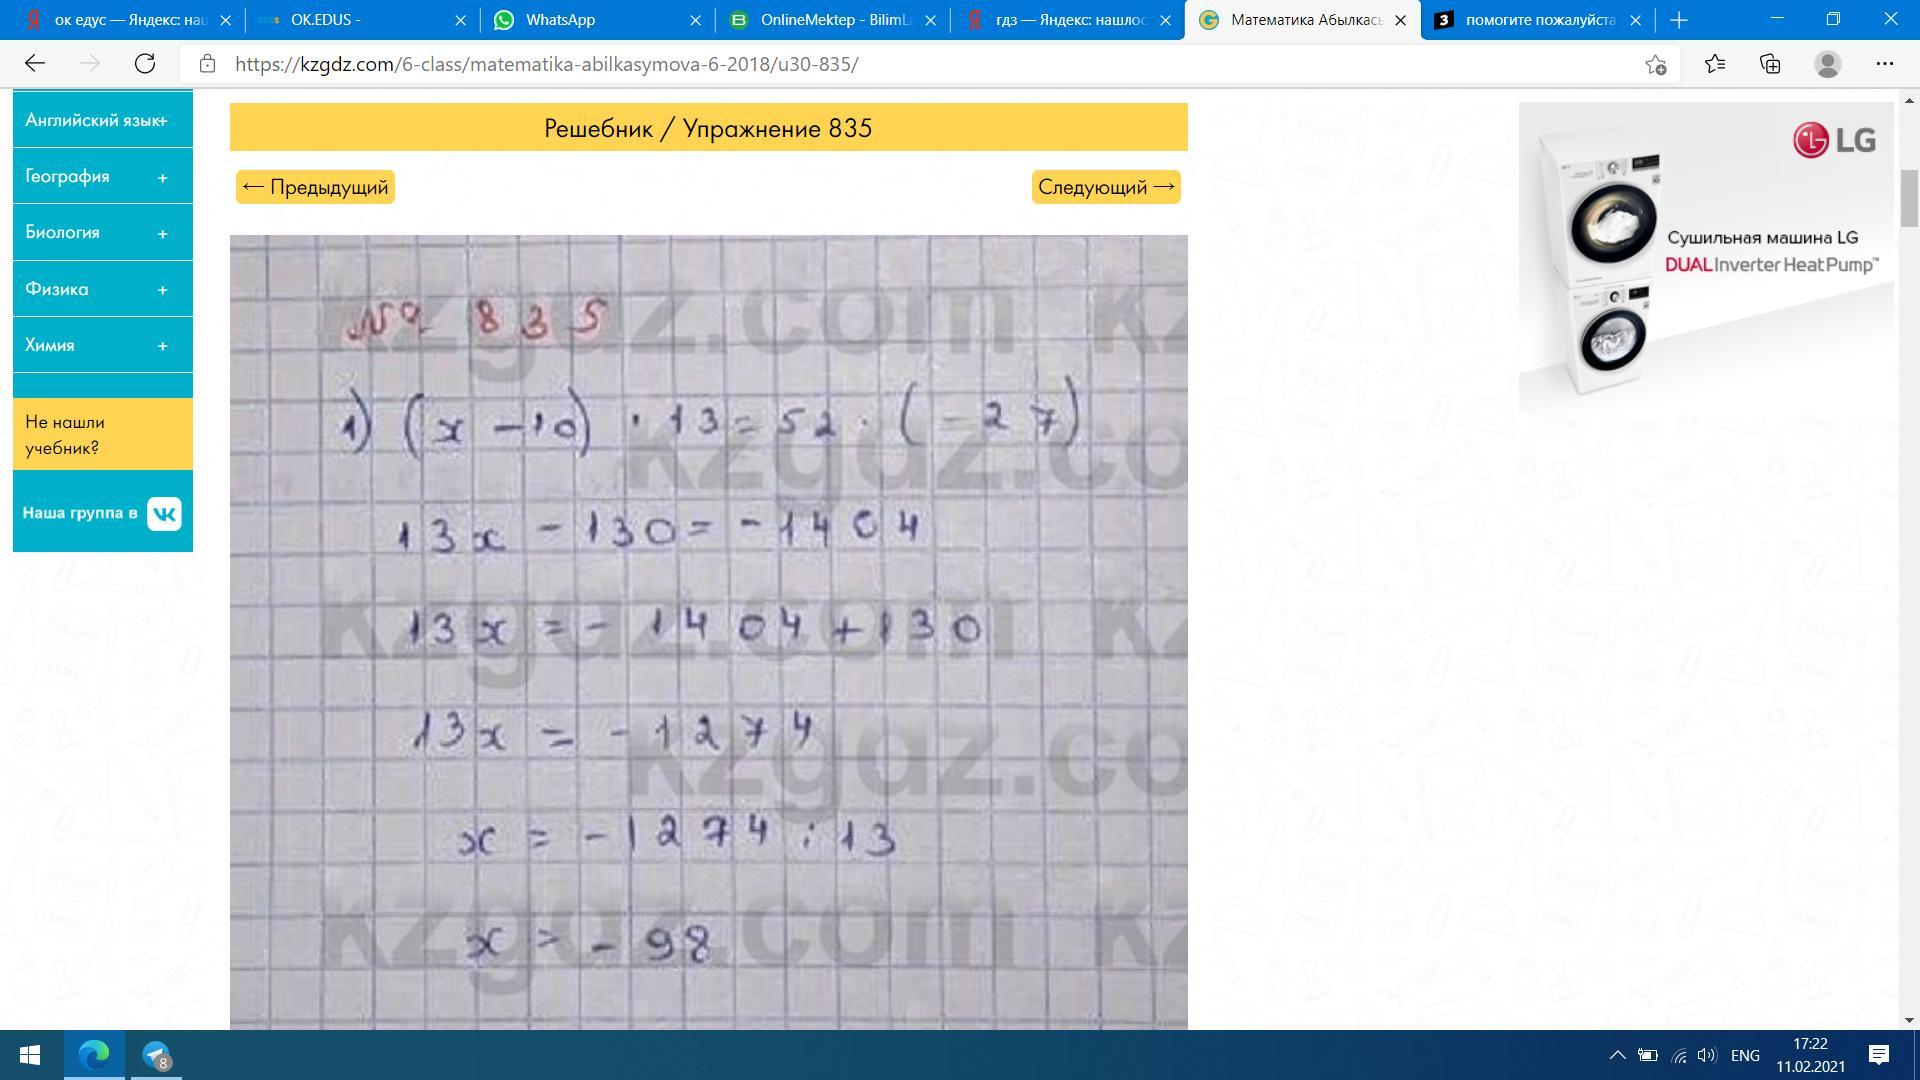 ок едус — Яндекс: наш
OK.EDUS -
WhatsApp
OnlineMektep - BilimLa
гдз — Яндекс: нашлос
Математика Абылкасы
помогите пожалуйста
https://kzgdz.com/6-class/matematika-abilkasymova-6-2018/u30-835/
Английский язык+
География +
Биология +
Физика +
Химия +
Не нашли
учебник?
Наша группа в
Решебник / Упражнение 835
← Предыдущий
Следующий →
№ 835
1) (x - 10) · 13 = 52 · (-27)
13x - 130 = - 1404
13x = - 1404 + 130
13x = - 1274
x = - 1274 : 13
x = - 98
kzgdz.com
LG
Сушильная машина LG
DUAL Inverter Heat Pump™
8
ENG
17:22
11.02.2021